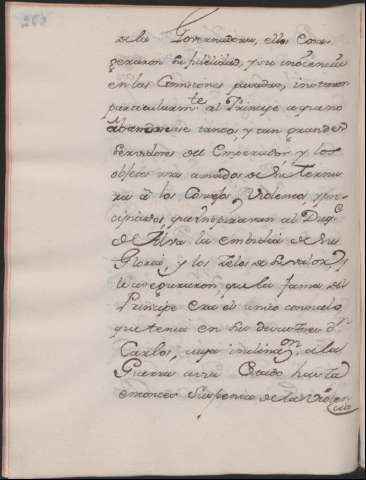 de la Governadora, ellos Coro-
peraron su fidelidad, y su inocencia
en las Comisiones pasadas, instaron
particularm.te al Principe a que no
abandonase tantos, y tan grandes
Servidores del Emperador, y los
objetos mas amados de su Ternu-
ra a los Consejos Violentos, y pre-
cipitados, que inspiraron al Duq.e
de Alva la embidia de su
Gloria, y los Zelos de su Valor, y
le aseguraron, que la fama del
Principe era el unico consuelo,
que tenia en su desventura d.n
Carlos, cuya inclinaz.on a la
Guerra avia Estado hasta
entonces Suspensa de la Violen-
cia